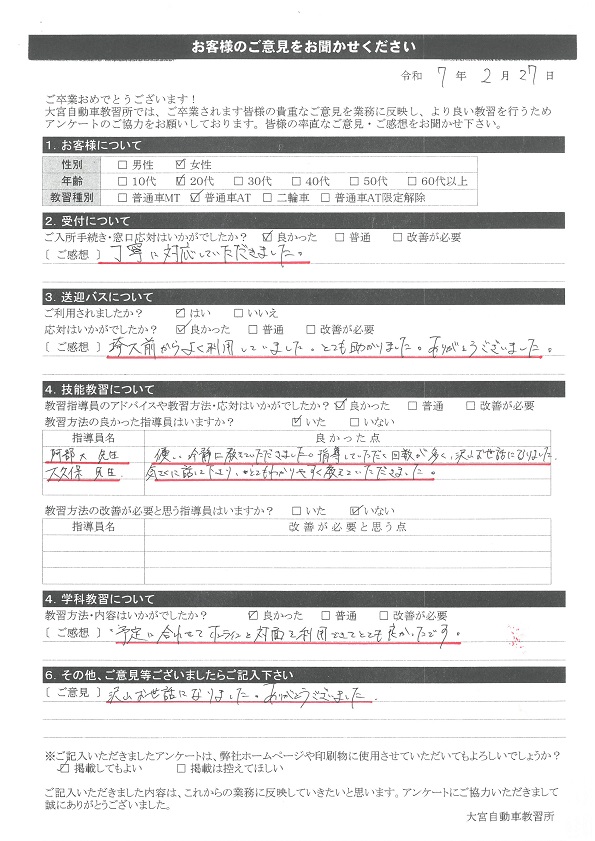 お客様のご意見をお聞かせください
令和 7 年 2 月 27 日
ご卒業おめでとうございます!
大宮自動車教習所では、ご卒業されます皆様の貴重なご意見を業務に反映し、より良い教習を行うため
アンケートのご協力をお願いしております。皆様の率直なご意見・ご感想をお聞かせ下さい。
1. お客様について
性別 □ 男性 ☑ 女性
年齢 □ 10代 ☑ 20代 □ 30代 □ 40代 □ 50代 □ 60代以上
教習種別 □ 普通車MT ☑ 普通車AT □ 二輪車 □ 普通車AT限定解除
2. 受付について
ご入所手続き・窓口応対はいかがでしたか? ☑ 良かった □ 普通 □ 改善が必要
〔 ご感想 〕 丁寧に対応していただきました。
3. 送迎バスについて
ご利用されましたか? ☑ はい □ いいえ
応対はいかがでしたか? ☑ 良かった □ 普通 □ 改善が必要
〔 ご感想 〕 埼大前からよく利用していました。とても助かりました。ありがとうございました。
4. 技能教習について
教習指導員のアドバイスや教習方法・応対はいかがでしたか? ☑ 良かった □ 普通 □ 改善が必要
教習方法の良かった指導員はいますか? ☑ いた □ いない
指導員名 良かった点
阿部大 先生 優しい 冷静に教えていただきました。指導していただく回数が多く、沢山お世話になりました
大久保 先生 気さくに話して下さり、とてもわかりやすく教えていただきました。
教習方法の改善が必要と思う指導員はいますか? □ いた ☑ いない
指導員名 改善が必要と思う点
4. 学科教習について
教習方法・内容はいかがでしたか? ☑ 良かった □ 普通 □ 改善が必要
〔 ご感想 〕 予定に合わせてオンラインと対面を利用できてとても良かったです。
6. その他、ご意見等ございましたらご記入下さい
〔 ご意見 〕 沢山お世話になりました。ありがとうございました
※ご記入いただきましたアンケートは、弊社ホームページや印刷物に使用させていただいてもよろしいでしょうか?
☑ 掲載してもよい □ 掲載は控えてほしい
ご記入いただきました内容は、これからの業務に反映していきたいと思います。アンケートにご協力いただきまして
誠にありがとうございました。
大宮自動車教習所